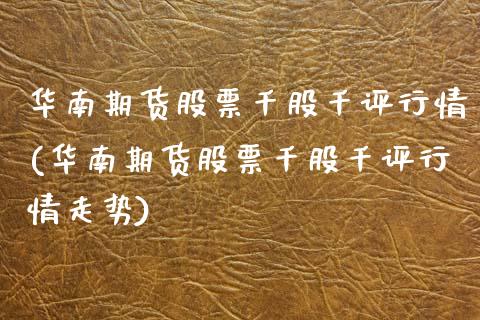 华南期货股票千股千评行情
(华南期货股票千股千评行
情走势)